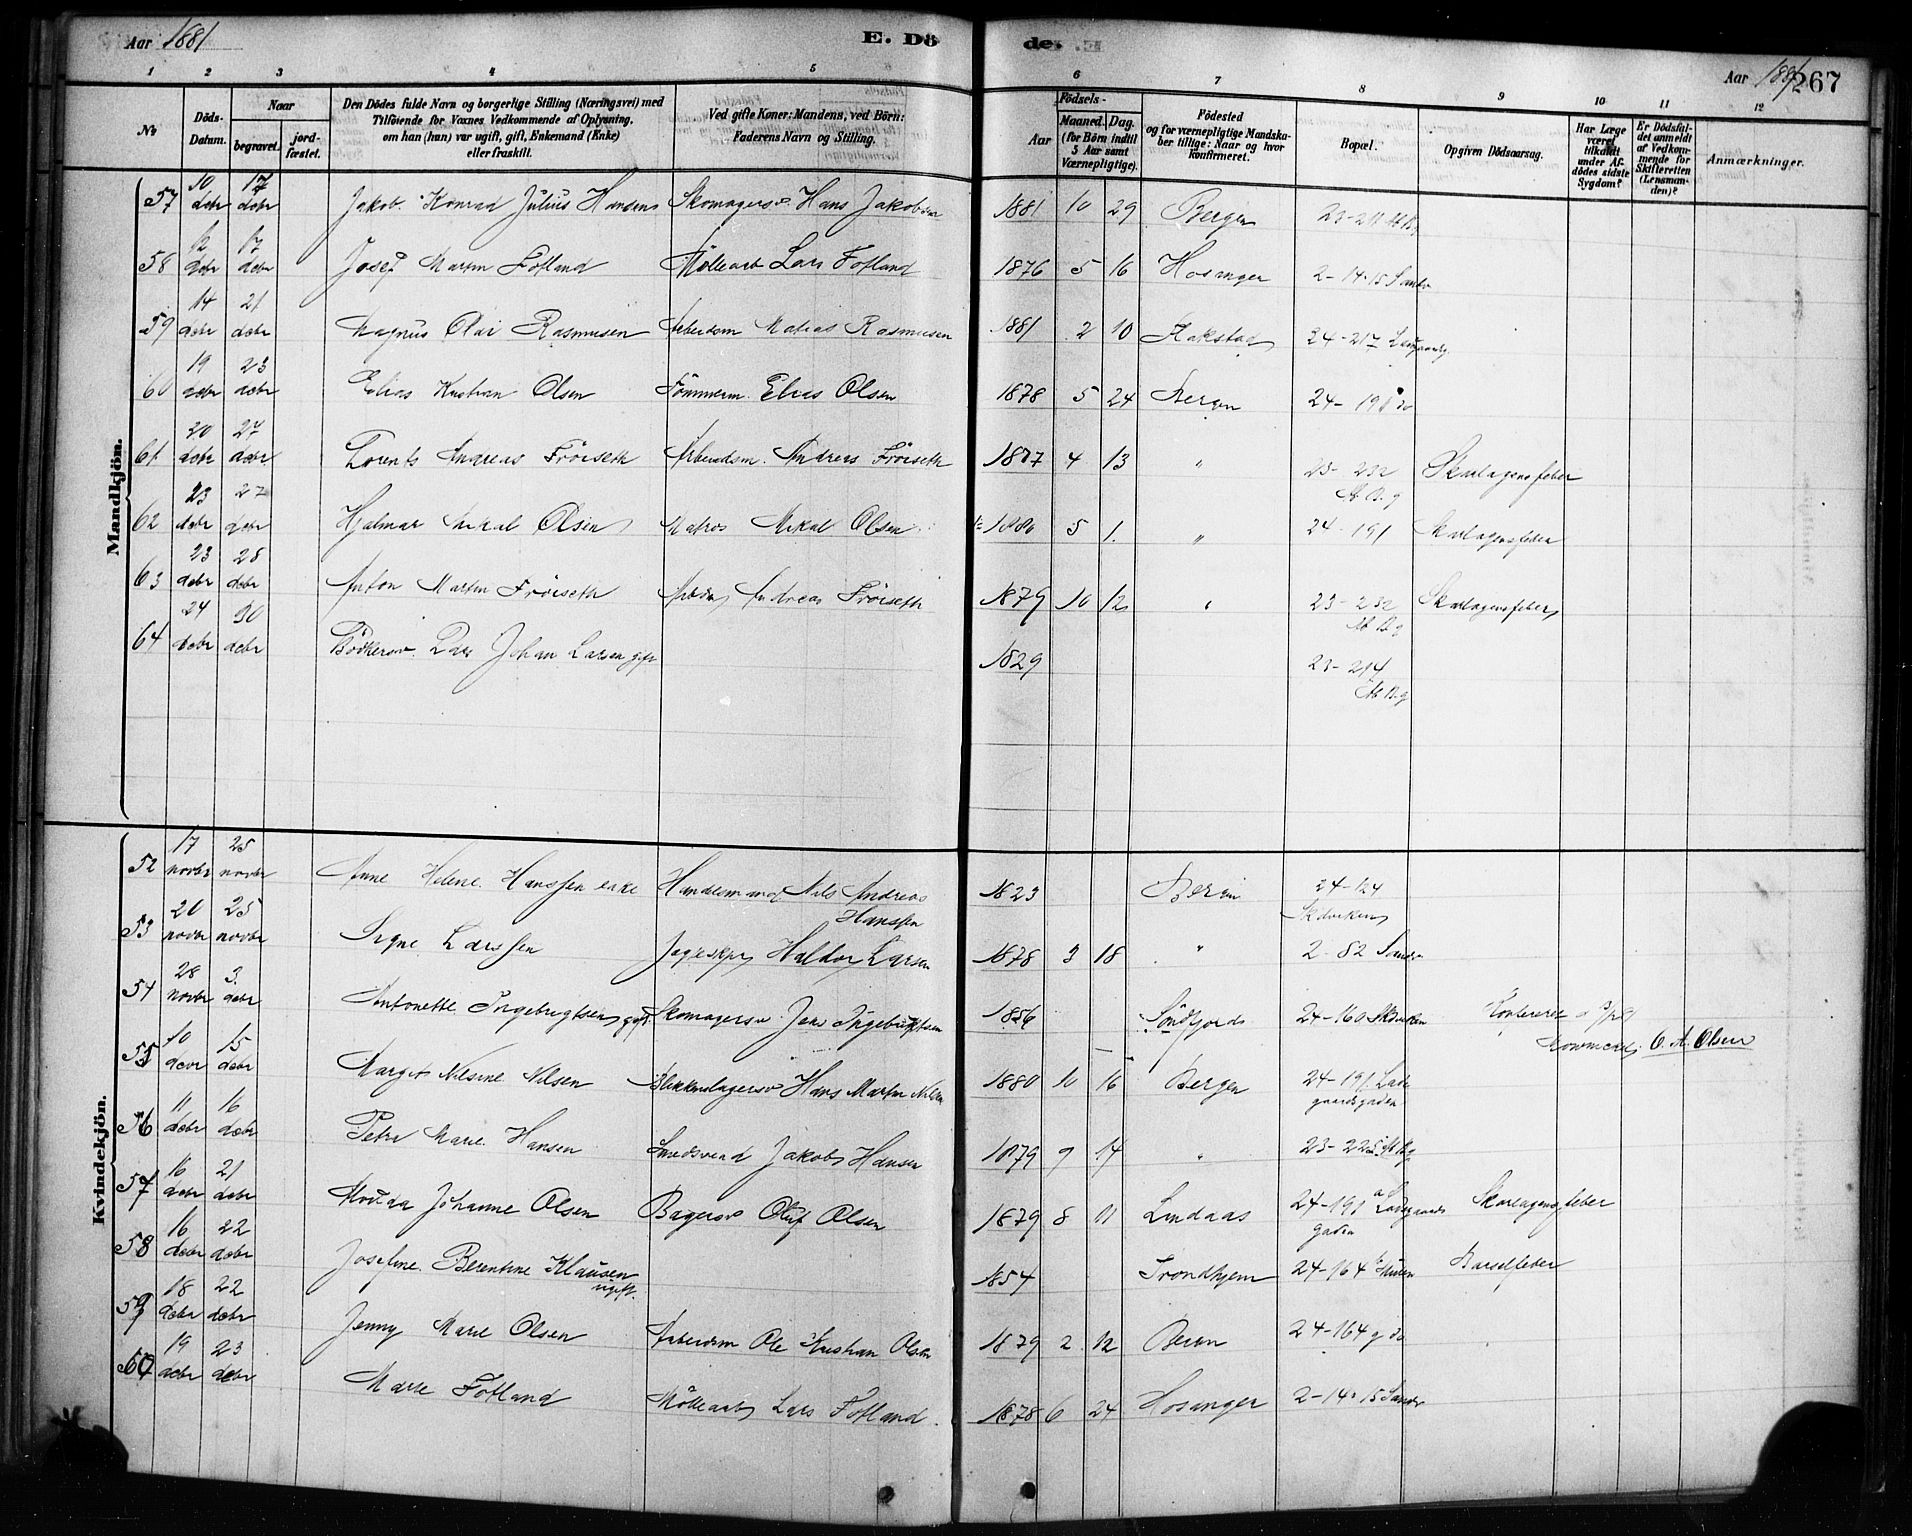 Aar 1881 E. Dö de. Aar 1881 267
1 2 3 4 5 6 7 8 9 10 11 12
No
Döds-Datum.
Naar
begravet.
jordfæstet.
Den Dödes fulde Navn og borgerlige Stilling (Næringsvei) med
Tilföiende for Voxnes Vedkommende af Oplysning,
om han (hun) var ugift, gift, Enkemand (Enke)
eller fraskilt.
Ved gifte Koner: Mandens, ved Börn:
Faderens Navn og Stilling.
Födsels-
Aar
Maaned. Dag.
(for Börn indtil
5 Aar samt
Værnepligtige).
Födested
og for værnepligtige Mandska-
ber tillige: Naar og hvor
konfirmeret.
Bopæl.
Opgiven Dödsaarsag.
Har Læge
været
tilkaldt
under Af-
dödes sidste
Sygdom?
Er Dödsfal-
det anmeldt
af Vedkom-
mende for
Skifteretten
(Lensman-
den)?
Anmærkninger.
Mandkjön.
57 10 debr 17 debr Jakob Konrad Julius Hansen Skomagersv. Hans Jakobsen 1881 10 29 Bergen
58 12 debr 17 debr Josef Martin Fofland Möllearb Lars Fofland 1876 5 16 Hosanger 2-14-15 Sandv
59 14 debr 21 debr Magnus Olai Rasmusen Arbeidsm Matias Rasmusen 1881 2 10 Hakstad 24-217
60 19 debr 23 debr Elias Kristian Olsen Tömmerm. Elias Olsen 1878 5 24 Bergen 24-191 do
61 20 debr 27 debr Lorents Andreas Fröiseth Arbeidsm. Andreas Fröiseth 1877 4 13 " 23-232 Skarlagensfeber
62 23 debr 27 debr Hjalmar Mikal Olsen Matros Mikal Olsen 1880 5 1. " 24-191 Skarlagensfeber
63 23 debr 28 debr Anton Martin Fröiseth Arbdm Andreas Fröiseth 1879 10 12 " 23-232 Skarlagensfeber
64 24 debr 30 debr Bödkersv. Lars Johan Larsen gift 1829 23-214
Kvindekjön.
52 17 novbr 25 novbr Anne Helene Hanssen enke Handelsmand Nils Andreas
Hanssen 1823 Bergen 24-124
Skivekens
53 20 novbr 25 novbr Signe Larssen Jagteskpr Haldor Larsen 1878 3 18 " 2-82 Sandv
54 28 novbr 3. debr Antonette Ingebrigtsen gift. Skomagersv. Jens Ingebrigtsen 1856 Söndfjord 24-160 O. A. Olsen
55 10 debr 15 debr Margit Nilsine Nilsen Blikkenslagersv Hans Martin Nilsen 1880 10 16 Bergen 24-191 Lade
gaardsgaden
56 11 debr 16 debr Petra Marie Hansen Smedsvend Jakob Hansen 1879 9 14 " 23-225
57 16 debr 21 debr Johanne Olsen Bagersv Oluf Olsen 1879 8 11 Lindaas 24-191 a Ladegaards
gaden Skarlagensfeber
58 16 debr 22 debr Josefine Berentine Klausen
ugift. 1854 Trondhjem 24-164 Barselfeber
59 18 debr 22 debr Jenny Marie Olsen Arbeidsm Ole Kristian Olsen 1879 2 12 Bergen 24-164 g do
60 19 debr 23 debr Marie Fofland Möllearb Lars Fofland 1878 6 24 Hosanger 2-14-15 Sandv